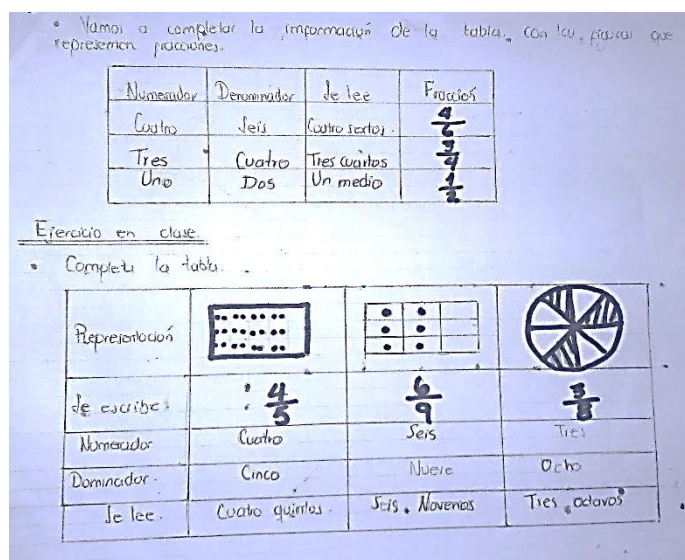 • Vamos a completar la información de la tabla, con las figuras que
representen fracciones.
Numerador Denominador Se lee Fracción
Cuatro Seis Cuatro sextos. 4/6
Tres Cuatro Tres cuartos 3/4
Uno Dos Un medio 1/2
Ejercicio en clase.
• Completa la tabla.
Representación
Se escribe: 4/5 6/9 3/8
Numerador Cuatro Seis Tres
Dominador. Cinco Nueve Ocho
Se lee. Cuatro quintos. Seis Novenos Tres octavos